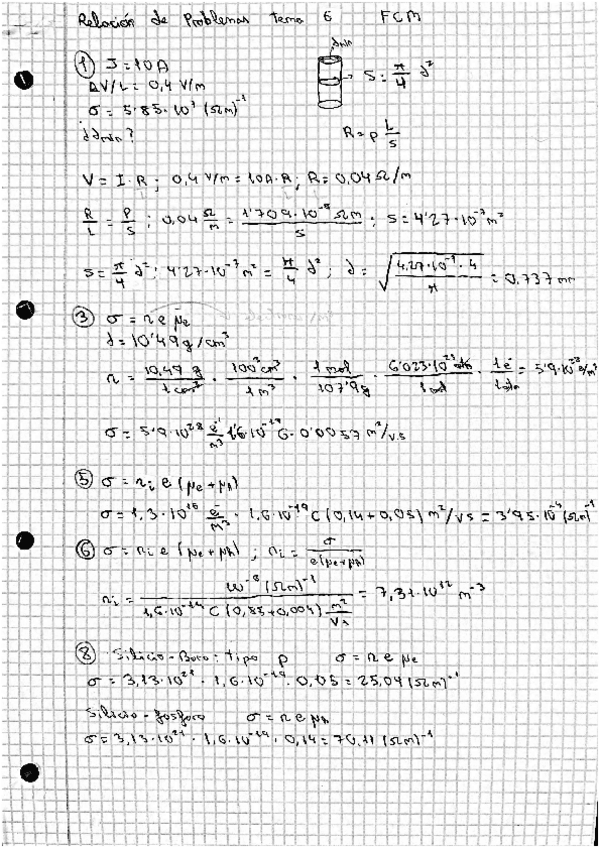 Relación de Problemas Tema 6 FCM
① I = 10A
ΔV/L = 0,4 V/m
σ = 5'85·10⁷ (Ωm)⁻¹
¿dmin?
dmin
S = π/4 d²
R = ρ L/S
V = I·R ; 0,4 V/m = 10A·R ; R = 0,04 Ω/m
R/L = ρ/S ; 0,04 Ω/m = 1'709·10⁻⁸ Ωm / S ; S = 4'27·10⁻⁷ m²
S = π/4 d² ; 4'27·10⁻⁷ m² = π/4 d² ; d = √(4,27·10⁻⁷·4 / π) = 0,737 mm
③ σ = n e μe
d = 10'49 g/cm³
n = 10,49 g / 1 cm³ · 100³ cm³ / 1 m³ · 1 mol / 107'9 g · 6'023·10²³ / 1 mol · 1 e⁻ = 5'9·10²⁸ e/m³
σ = 5'9·10²⁸ e⁻/m³ 1'6·10⁻¹⁹ C · 0'0057 m²/V.s
⑤ σ = ni e (μe + μh)
σ = 1,3·10¹⁶ e⁻/m³ · 1,6·10⁻¹⁹ C (0,14 + 0,05) m²/Vs = 3'95·10⁻⁴ (Ωm)⁻¹
⑥ σ = ni e (μe + μh) ; ni = σ / e(μe+μh)
ni = 10⁻⁶ (Ωm)⁻¹ / 1,6·10⁻¹⁹ C (0,85 + 0,004) m²/Vs = 7,31·10¹² m⁻³
⑧ Silicio-Boro: tipo p σ = n e μe
σ = 3,13·10²¹ · 1,6·10⁻¹⁹ · 0,05 = 25,04 (Ωm)⁻¹
Silicio-fosforo σ = n e μh
σ = 3,13·10²¹ · 1,6·10⁻¹⁹ · 0,14 = 70,11 (Ωm)⁻¹